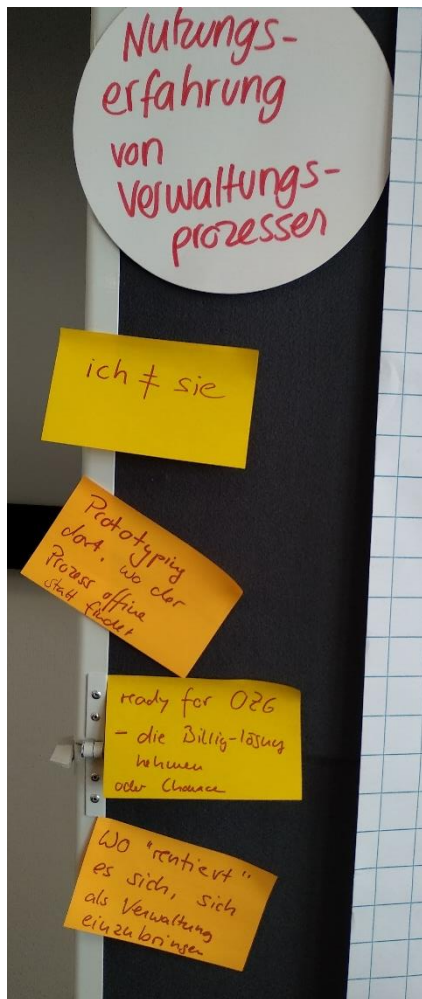 Nutzungs-
erfahrung
von
Verwaltungs-
prozessen
ich ≠ sie
Prototyping
dort, wo der
Prozess offline
statt findet
ready for OZG
- die Billig-lösung
nehmen
oder Chance
Wo "rentiert"
es sich, sich
als Verwaltung
einzubringen